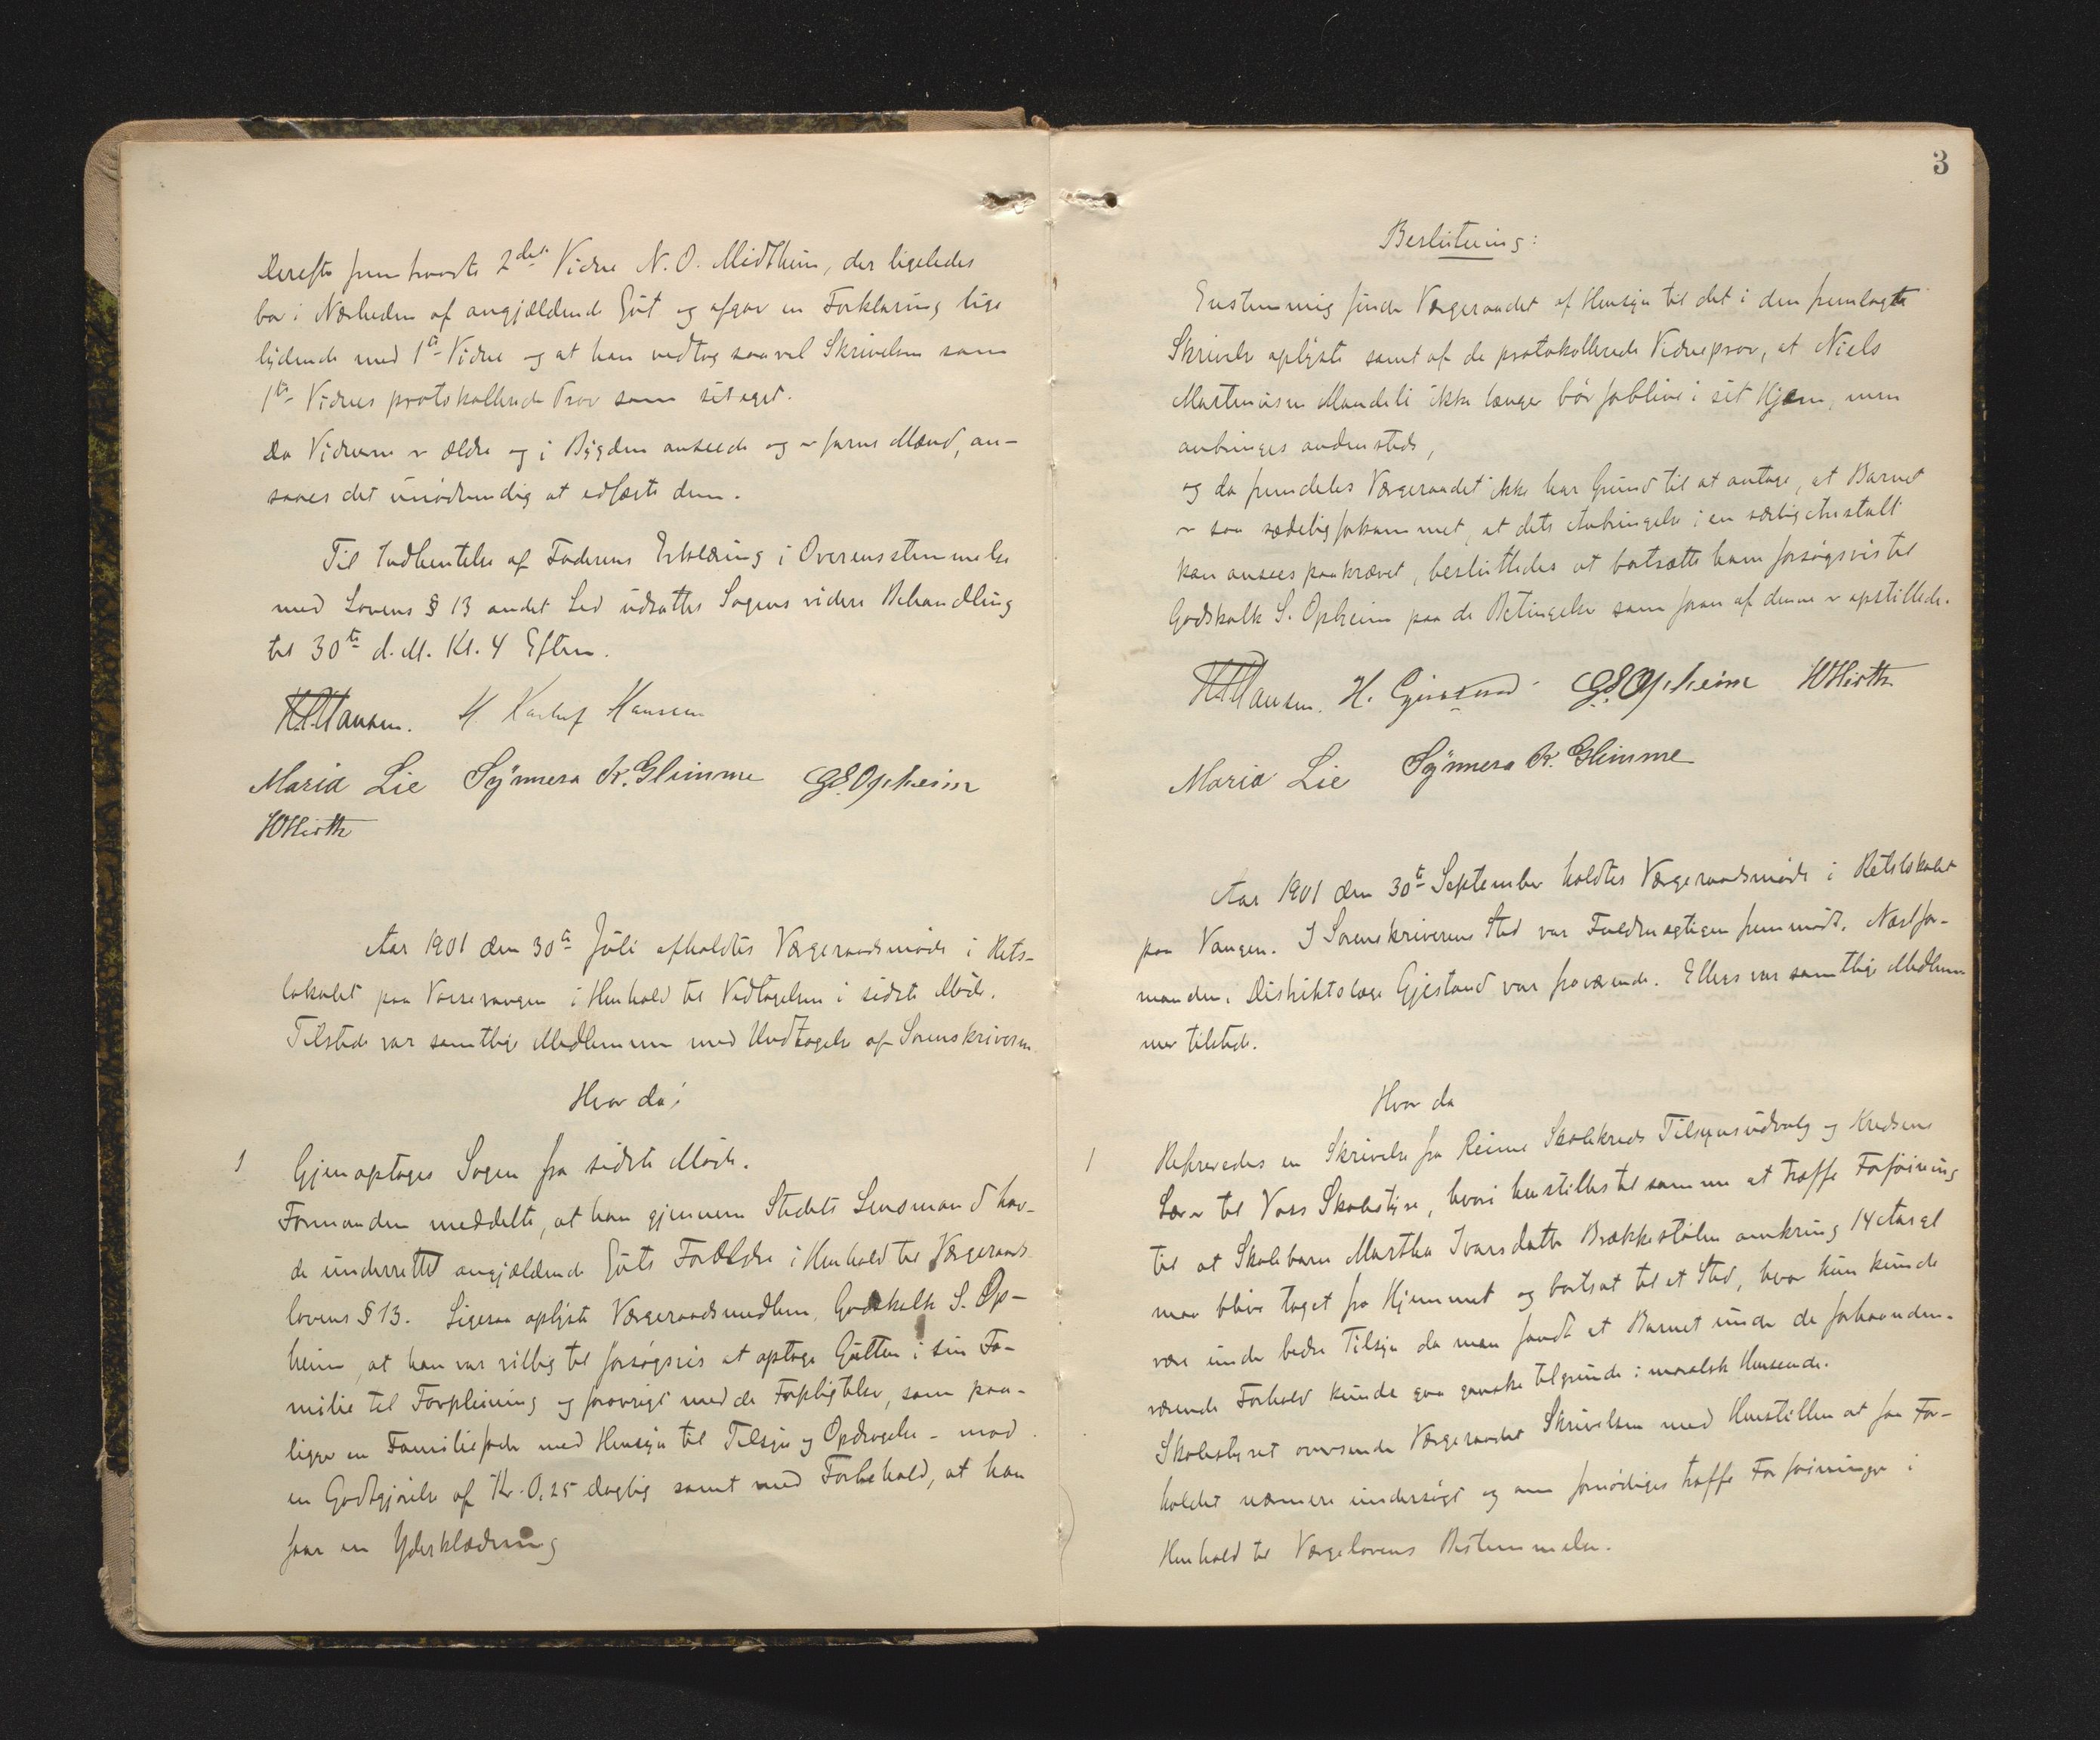 Derefter fremtraadte 2det Vidne N. O. Midtheim, der ligeledes
bor i Nærheden af angjældende Gut og afgav en Forklaring lige
lydende med 1te Vidne og at han vedtog saavel Skrivelsen som
1te Vidnes protokollerede Prov som sit eget.
Da Vidnerne er ældre og i Bygden ansede og erfarne Mænd, an-
saaes det unødvendig at edfæste dem.
Til Indhentelse af Faderens Erklæring i Overensstemmelse
med Lovens § 13 andet Led udsattes Sagens videre Behandling
til 30te d. M. Kl. 4 Efterm.
Hansen. Hansen
Maria Lie Synneva K. Glimme G S. Opheim
Aar 1901 den 30te Juli afholdtes Værgeraadsmøde i Rets-
lokalet paa Vossevangen i Henhold til Vedtagelsen i sidste Møde.
Tilstede var samtlige Medlemmer med Undtagelse af Sorenskriveren.
Hvor da:
1 Gjenoptoges Sagen fra sidste Møde.
Formanden meddelte, at han gjennem Stedets Lensmand hav-
de underrettet angjældende Guts Forældre i Henhold til Værgeraads
lovens § 13. Ligesaa oplyste Værgeraadsmedlem, Godskalk S. Op-
heim, at han var villig til forsøgsvis at optage Gutten i sin Fa-
milie til Forpleining og forøvrigt med de Forpligtelser, som paa-
ligger en Familiefader med Hensyn til Tilsyn og Opdragelse - mod
en Godtgjørelse af Kr. 0,25 daglig samt med Forbehold, at han
faar en Yderklædning
3
Beslutning:
Enstemmig finder Værgeraadet af Hensyn til det i den fremlagte
Skrivelse oplyste samt af de protokollerede Vidneprov, at Niels
Martinusen Mandeli ikke længer bør forblive i sit Hjem, men
anbringes andensteds,
og da fremdeles Værgeraadet ikke har Grund til at antage, at Barnet
er saa sædelig forkommet, at dets Anbringelse i en særlig Anstalt
kan ansees paakrævet, besluttedes at bortsætte ham forsøgsvis til
Godskalk S. Opheim paa de Betingelser som foran af denne er opstillede.
Hansen. H. Gjestand G S. Opheim
Maria Lie Synneva K. Glimme
Aar 1901 den 30te September holdtes Værgeraadsmøde i Retslokalet
paa Vangen. I Sorenskriverens Sted var Fuldmægtigen fremmødt. Næstfor-
manden, Distriktslæge Gjestand var fraværende. Ellers var samtlige Medlem-
mer tilstede.
Hvor da
1 Refereredes en Skrivelse fra Reime Skolekreds Tilsynsudvalg og Kredsens
Lærer til Voss Skolestyre, hvori henstilles til samme at træffe Forføining
til at Skolebarn Martha Ivarsdatter Brækkestølen omkring 14 Aar gl
maa blive taget fra Hjemmet og bortsat til et Sted, hvor hun kunde
være under bedre Tilsyn da man fandt at Barnet under de forhaanden-
værende Forhold kunde gaa ganske tilgrunde i moralsk Henseende.
Skolestyret oversender Værgeraadet Skrivelsen med Henstillen at faa For-
holdet nærmere undersøgt og om fornødiges træffe Forføininger i
Henhold til Værgelovens Bestemmelser.